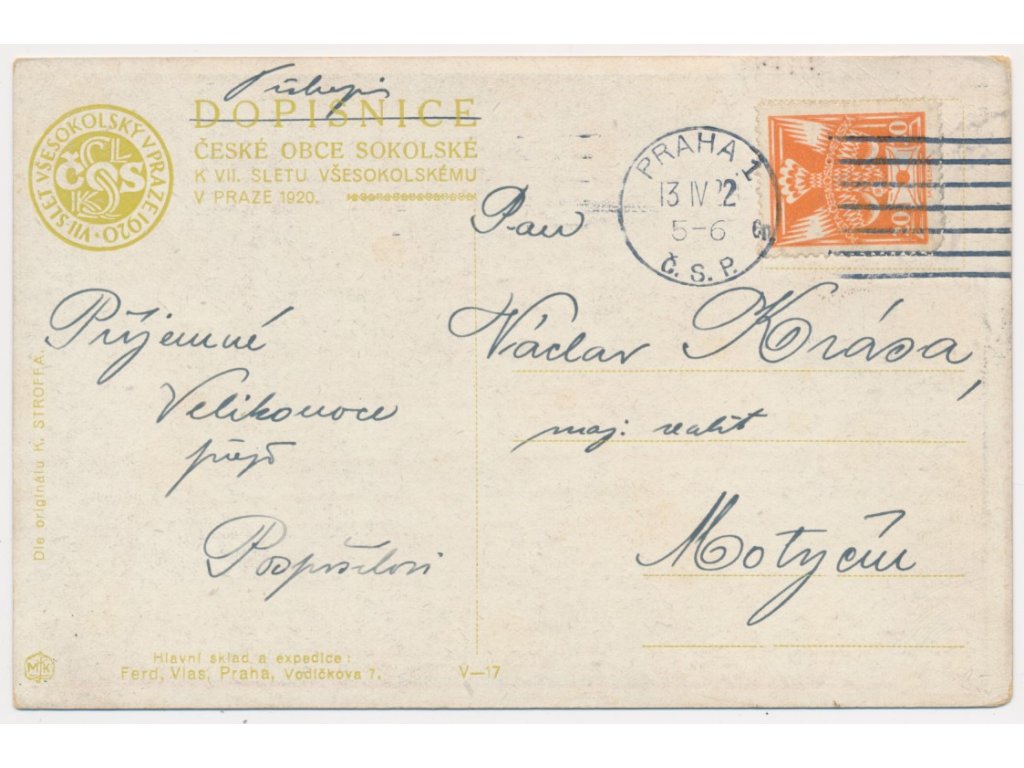 Tiskopis
DOPISNICE
ČESKÉ OBCE SOKOLSKÉ
K VII. SLETU VŠESOKOLSKÉMU
V PRAZE 1920.
VII. SLET VŠESOKOLSKÝ V PRAZE 1920
PRAHA 1
13 IV 22
5-6
Č. S. P.
Pan
Václav Krása,
maj. realit
Motyčín
Příjemné
Velikonoce
přejí
Pospíšilovi
Dle originálu K. STROFFA.
MK
Hlavní sklad a expedice:
Ferd. Vlas, Praha, Vodičkova 7.
V—17